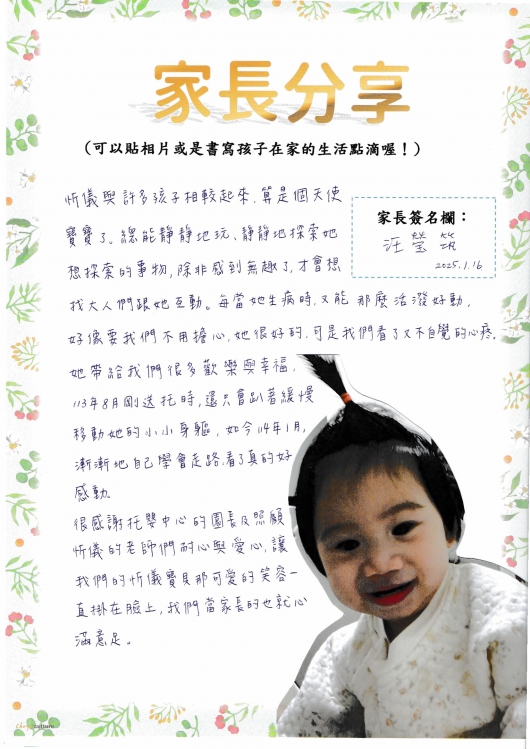 家長分享
(可以貼相片或是書寫孩子在家的生活點滴喔！)
家長簽名欄：
汪瑩筑
2025.1.16
忻儀與許多孩子相較起來，算是個天使
寶寶了。總能靜靜地玩、靜靜地探索她
想探索的事物，除非感到無趣了，才會想
找大人們跟她互動。每當她生病時，又能 那麼活潑好動，
好像要我們不用擔心，她很好的，可是我們看了又不自覺的心疼。
她帶給我們很多歡樂與幸福，
113年8月剛送托時，還只會趴著緩慢
移動她的小小身軀，如今114年1月，
漸漸地自己學會走路，看了真的好
感動。
很感謝托嬰中心的園長及照顧
忻儀的老師們耐心與愛心，讓
我們的忻儀寶貝那可愛的笑容一
直掛在臉上，我們當家長的也就心
滿意足。